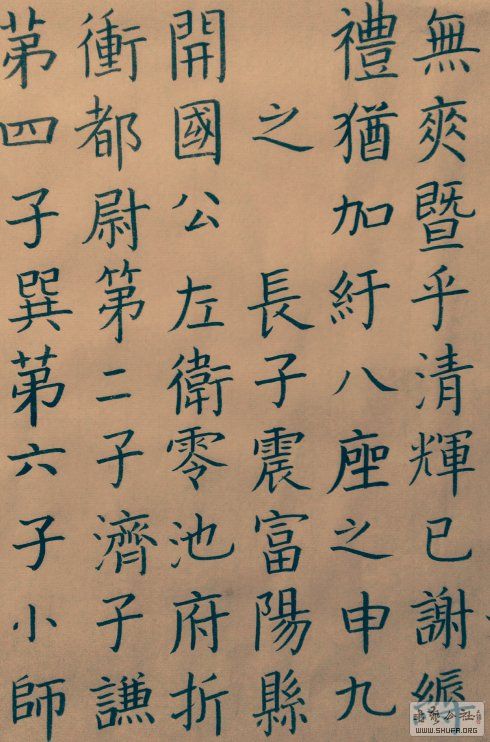 無爽暨乎清輝已謝
禮猶加紆八座之申九
之 長子震富陽縣
開國公左衛零池府折
衝都尉第二子濟子謙
第四子巽第六子小師
WWW.SHUFA.ORG